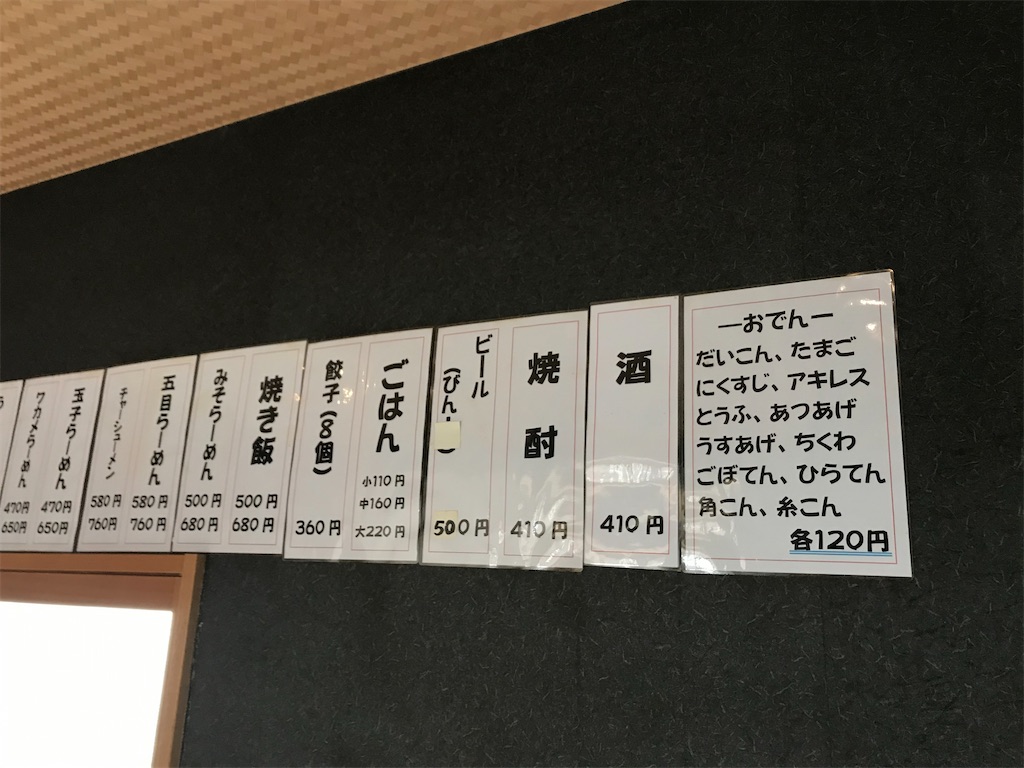 ーおでんー
だいこん、たまご
にくすじ、アキレス
とうふ、あつあげ
うすあげ、ちくわ
ごぼてん、ひらてん
角こん、糸こん
各120円
酒
410円
焼酎
410円
ビール
(びん)
500円
ごはん
小110円
中160円
大220円
餃子(8個)
360円
焼き飯
500円
680円
みそらーめん
500円
680円
五目らーめん
580円
760円
チャーシューメン
580円
760円
玉子らーめん
470円
650円
ワカメらーめん
470円
650円